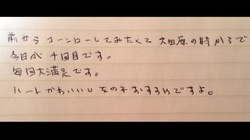 前からコーンローしてみたくて大田原の時からで
今日が十回目です。
毎回大満足です。
ハートかわいいしなのでおすすめですよ。